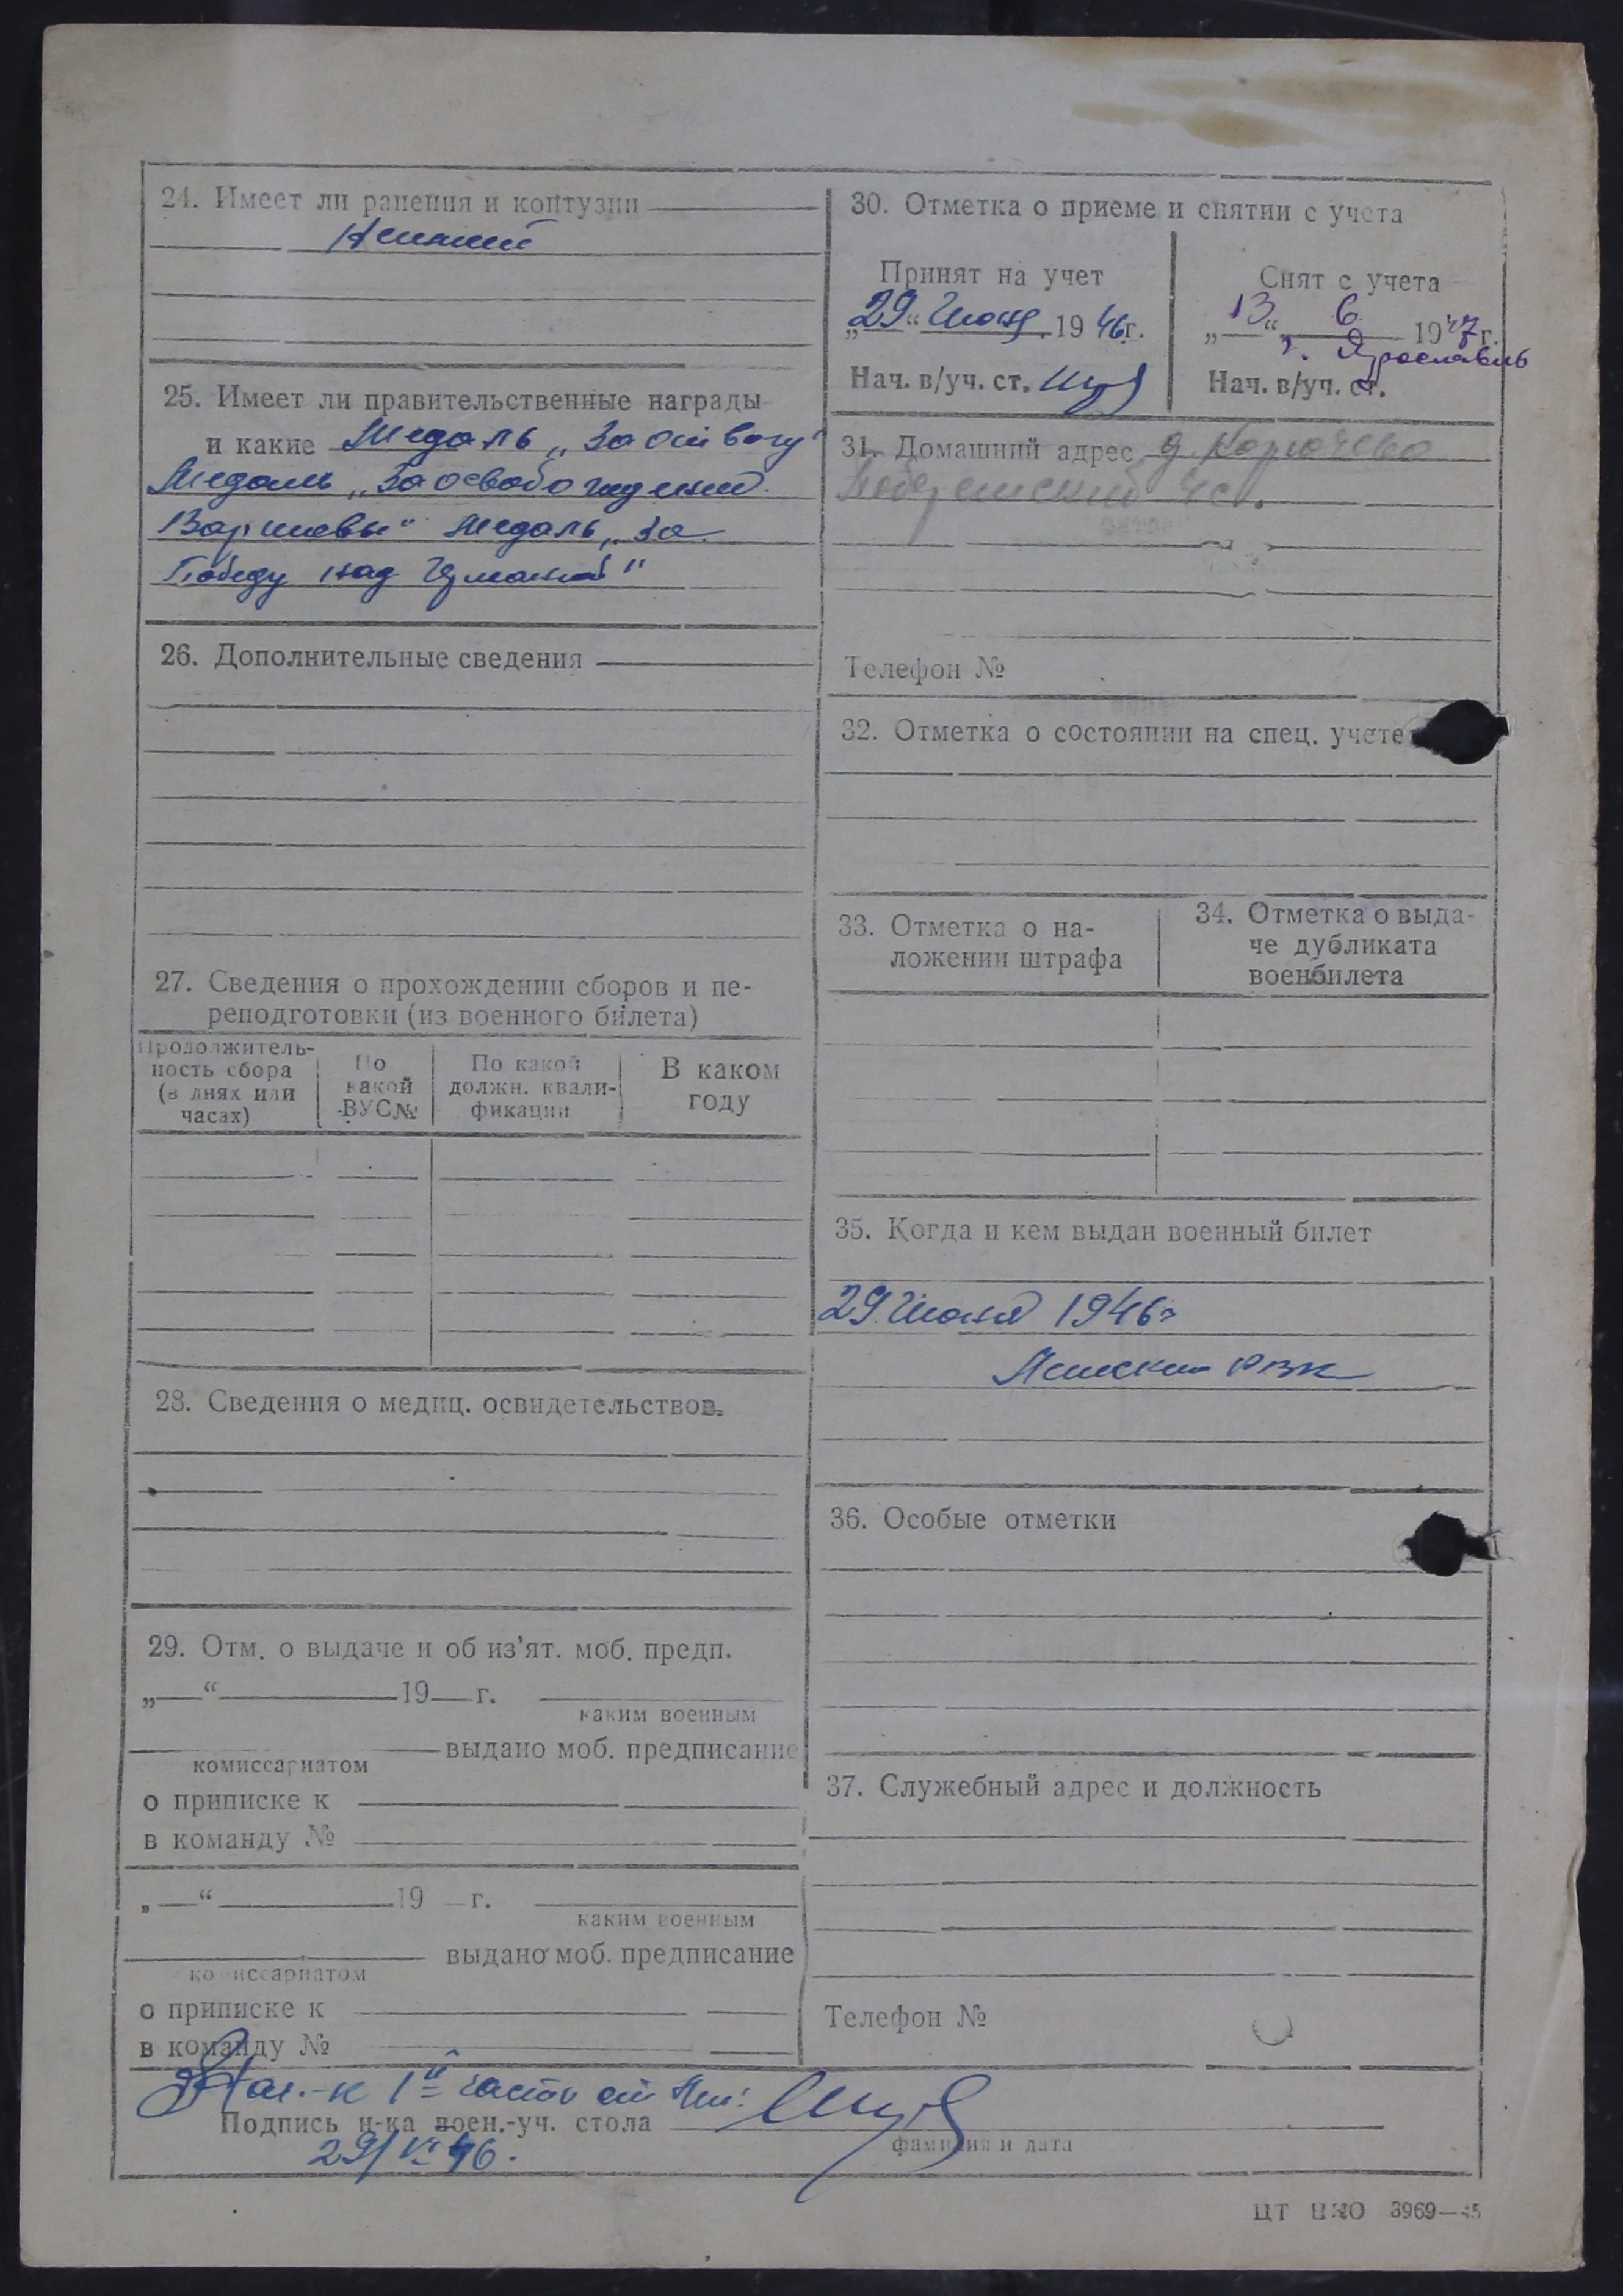 24. Имеет ли ранения и контузии
25. Имеет ли правительственные награды
и какие Медаль „За отвагу"
Медаль „За освобождение
Варшавы" Медаль „За
Победу над Германией"
26. Дополнительные сведения
27. Сведения о прохождении сборов и пе-
реподготовки (из военного билета)
Продолжитель-
ность сбора
(в днях или
часах)
По
какой
ВУС№
По какой
должн. квали-
фикации
В каком
году
28. Сведения о медиц. освидетельствов.
29. Отм. о выдаче и об из’ят. моб. предп.
„ “ 19 г.
каким военным
выдано моб. предписание
комиссариатом
о приписке к
в команду №
„ “ 19 г.
каким военным
выдано моб. предписание
комиссариатом
о приписке к
в команду №
30. Отметка о приеме и снятии с учета
Принят на учет
„29“ Июня 1946г.
Нач. в/уч. ст.
Снят с учета
„13“ 6 1947г.
г. Ярославль
Нач. в/уч. ст.
31. Домашний адрес д.
Телефон №
32. Отметка о состоянии на спец. учете
33. Отметка о на-
ложении штрафа
34. Отметка о выда-
че дубликата
военбилета
35. Когда и кем выдан военный билет
29 Июня 1946г
РВК
36. Особые отметки
37. Служебный адрес и должность
Телефон №
Нач.-к 1й части
Подпись н-ка воен.-уч. стола
фамилия и дата
29/VI 46.
ЦТ НКО 3969—45